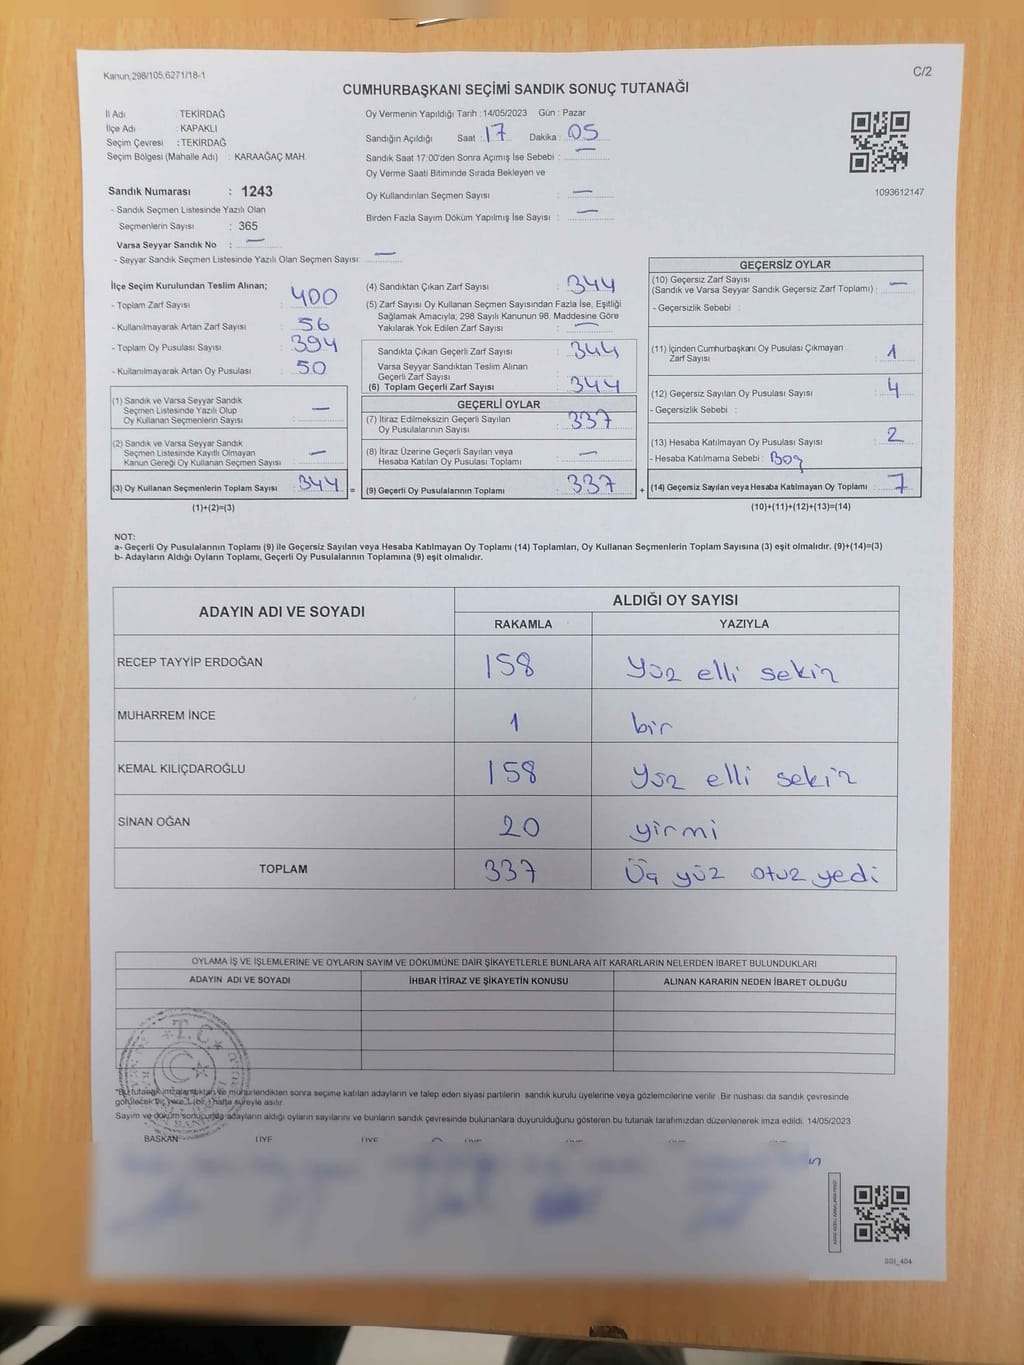 Kanun.298/105.6271/18-1
C/2
CUMHURBAŞKANI SEÇİMİ SANDIK SONUÇ TUTANAĞI
İl Adı : TEKİRDAĞ
İlçe Adı : KAPAKLI
Seçim Çevresi : TEKİRDAĞ
Seçim Bölgesi (Mahalle Adı) : KARAAĞAÇ MAH.
Sandık Numarası : 1243
- Sandık Seçmen Listesinde Yazılı Olan
Seçmenlerin Sayısı : 365
Varsa Seyyar Sandık No : —
- Seyyar Sandık Seçmen Listesinde Yazılı Olan Seçmen Sayısı: —
Oy Vermenin Yapıldığı Tarih : 14/05/2023 Gün : Pazar
Sandığın Açıldığı Saat : 17 Dakika : 05
Sandık Saat 17:00'den Sonra Açımış İse Sebebi : —
Oy Verme Saati Bitiminde Sırada Bekleyen ve
Oy Kullandırılan Seçmen Sayısı : —
Birden Fazla Sayım Döküm Yapılmış İse Sayısı : —
1093612147
İlçe Seçim Kurulundan Teslim Alınan;
- Toplam Zarf Sayısı : 400
- Kullanılmayarak Artan Zarf Sayısı : 56
- Toplam Oy Pusulası Sayısı : 394
- Kullanılmayarak Artan Oy Pusulası : 50
(1) Sandık ve Varsa Seyyar Sandık
Seçmen Listesinde Yazılı Olup
Oy Kullanan Seçmenlerin Sayısı : —
(2) Sandık ve Varsa Seyyar Sandık
Seçmen Listesinde Kayıtlı Olmayan
Kanun Gereği Oy Kullanan Seçmen Sayısı : —
(3) Oy Kullanan Seçmenlerin Toplam Sayısı : 344 =
(1)+(2)=(3)
(4) Sandıktan Çıkan Zarf Sayısı : 344
(5) Zarf Sayısı Oy Kullanan Seçmen Sayısından Fazla İse, Eşitliği
Sağlamak Amacıyla; 298 Sayılı Kanunun 98. Maddesine Göre
Yakılarak Yok Edilen Zarf Sayısı : —
Sandıkta Çıkan Geçerli Zarf Sayısı : 344
Varsa Seyyar Sandıktan Teslim Alınan
Geçerli Zarf Sayısı
(6) Toplam Geçerli Zarf Sayısı : 344
GEÇERLİ OYLAR
(7) İtiraz Edilmeksizin Geçerli Sayılan
Oy Pusulalarının Sayısı : 337
(8) İtiraz Üzerine Geçerli Sayılan veya
Hesaba Katılan Oy Pusulası Toplamı : —
(9) Geçerli Oy Pusulalarının Toplamı : 337 +
GEÇERSİZ OYLAR
(10) Geçersiz Zarf Sayısı
(Sandık ve Varsa Seyyar Sandık Geçersiz Zarf Toplamı) : —
- Geçersizlik Sebebi :
(11) İçinden Cumhurbaşkanı Oy Pusulası Çıkmayan
Zarf Sayısı : 1
(12) Geçersiz Sayılan Oy Pusulası Sayısı : 4
- Geçersizlik Sebebi :
(13) Hesaba Katılmayan Oy Pusulası Sayısı : 2
- Hesaba Katılmama Sebebi : Boş
(14) Geçersiz Sayılan veya Hesaba Katılmayan Oy Toplamı : 7
(10)+(11)+(12)+(13)=(14)
NOT:
a- Geçerli Oy Pusulalarının Toplamı (9) ile Geçersiz Sayılan veya Hesaba Katılmayan Oy Toplamı (14) Toplamları, Oy Kullanan Seçmenlerin Toplam Sayısına (3) eşit olmalıdır. (9)+(14)=(3)
b- Adayların Aldığı Oyların Toplamı, Geçerli Oy Pusulalarının Toplamına (9) eşit olmalıdır.
ADAYIN ADI VE SOYADI ALDIĞI OY SAYISI
RAKAMLA YAZIYLA
RECEP TAYYİP ERDOĞAN 158 Yüz elli sekiz
MUHARREM İNCE 1 bir
KEMAL KILIÇDAROĞLU 158 Yüz elli sekiz
SİNAN OĞAN 20 yirmi
TOPLAM 337 Üç yüz otuz yedi
OYLAMA İŞ VE İŞLEMLERİNE VE OYLARIN SAYIM VE DÖKÜMÜNE DAİR ŞİKAYETLERLE BUNLARA AİT KARARLARIN NELERDEN İBARET BULUNDUKLARI
ADAYIN ADI VE SOYADI İHBAR İTİRAZ VE ŞİKAYETİN KONUSU ALINAN KARARIN NEDEN İBARET OLDUĞU
T.C.
"Bu tutanak imzalandıktan ve mühürlendikten sonra seçime katılan adayların ve talep eden siyasi partilerin sandık kurulu üyelerine veya gözlemcilerine verilir. Bir nüshası da sandık çevresinde
görülecek bir yere 1 (bir) hafta süreyle asılır.
Sayım ve döküm sonucunda adayların aldığı oyların sayılarını ve bunların sandık çevresinde bulunanlara duyurulduğunu gösteren bu tutanak tarafımızdan düzenlenerek imza edildi. 14/05/2023
BAŞKAN ÜYE ÜYE ÜYE ÜYE ÜYE ÜYE